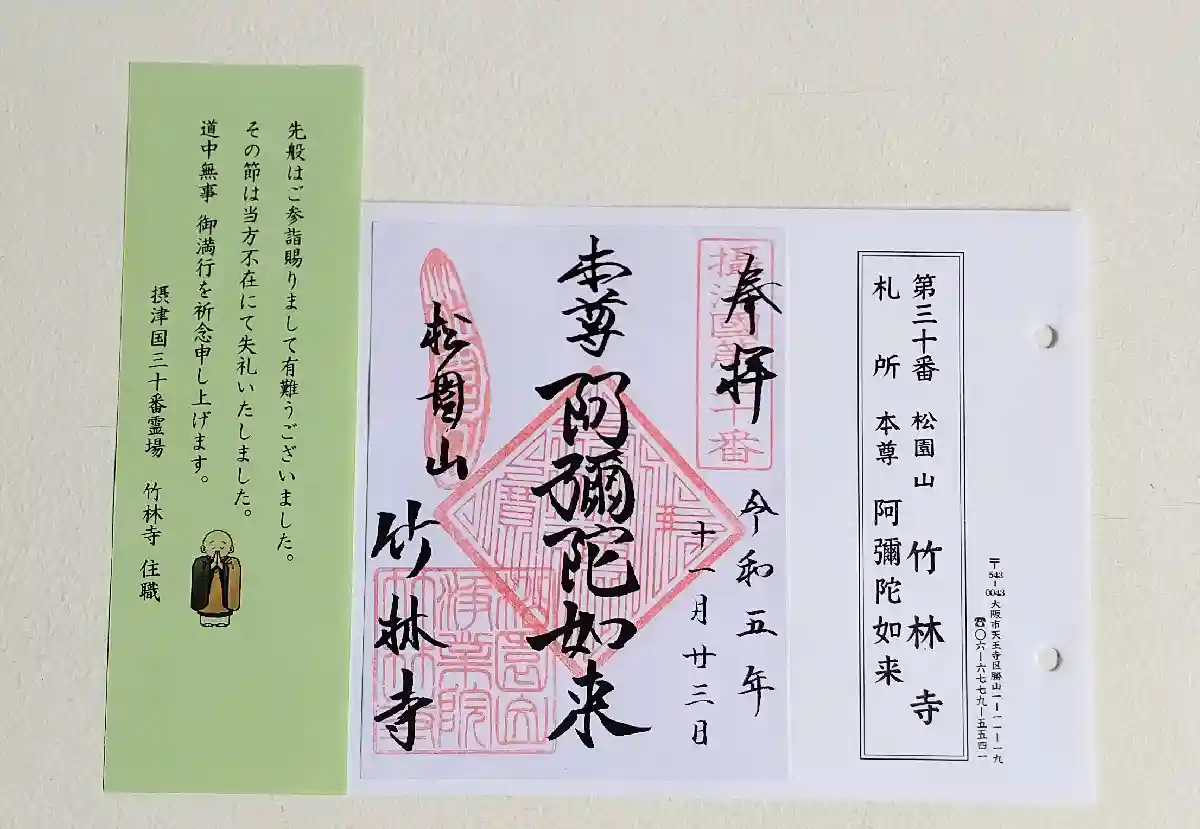 第三十番 松園山 竹林寺
札所 本尊 阿彌陀如来
〒543-0043 大阪市天王寺区勝山一-一一-一九
☎〇六-六七七九-五五四一
奉拝
令和五年
十一月廿三日
本尊 阿彌陀如来
松園山
竹林寺
先般はご参詣賜りまして有難うございました。
その節は当方不在にて失礼いたしました。
道中無事 御満行を祈念申し上げます。
摂津国三十番霊場 竹林寺 住職